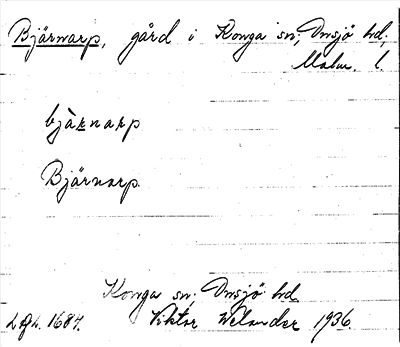 Bjärnarp, gård i Konga sn, Onsjö hd,
Malm. l.
bjärnarp
Bjärnarp
Konga sn, Onsjö hd
1684. Viktor Welander 1936